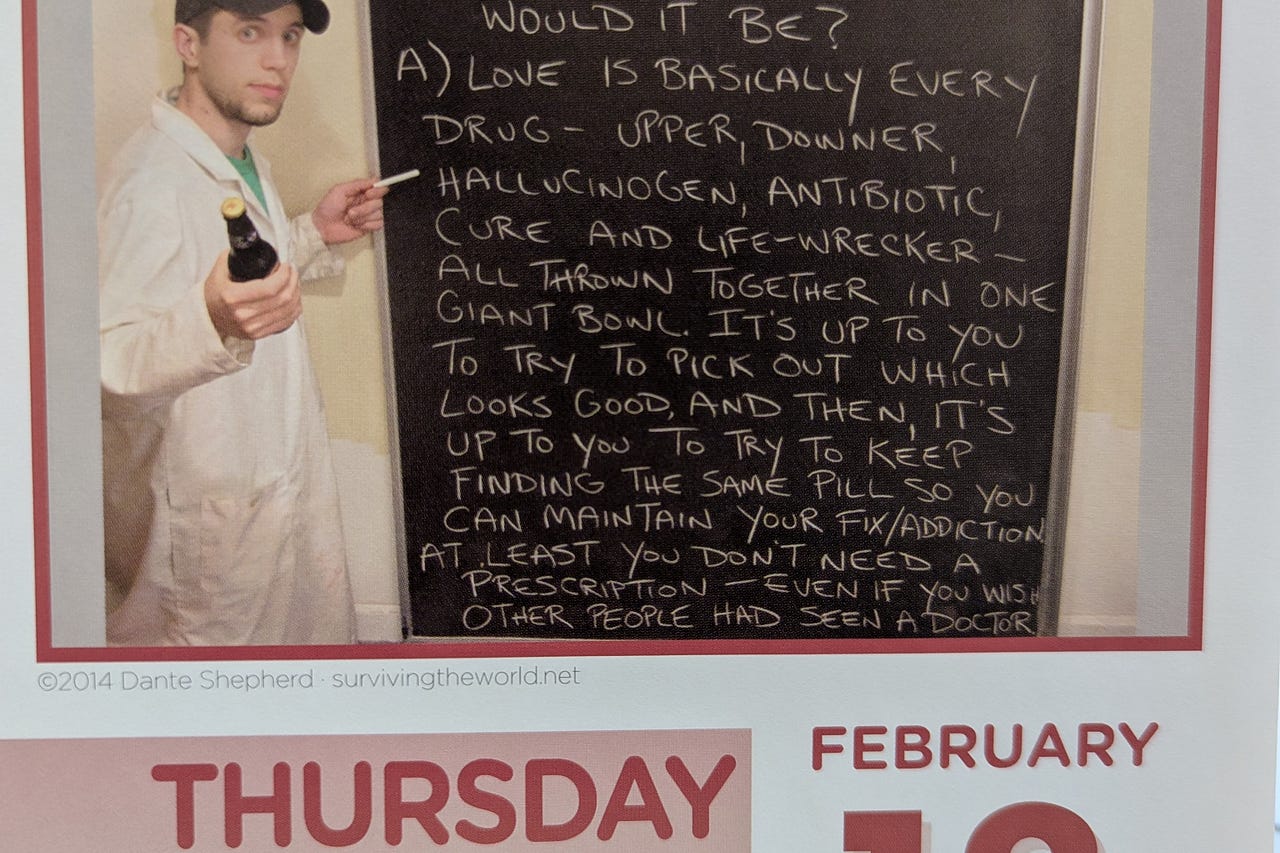 WOULD IT BE?
A) LOVE IS BASICALLY EVERY
DRUG - UPPER, DOWNER,
HALLUCINOGEN, ANTIBIOTIC,
CURE AND LIFE-WRECKER -
ALL THROWN TOGETHER IN ONE
GIANT BOWL. IT'S UP TO YOU
TO TRY TO PICK OUT WHICH
LOOKS GOOD, AND THEN, IT'S
UP TO YOU TO TRY TO KEEP
FINDING THE SAME PILL SO YOU
CAN MAINTAIN YOUR FIX/ADDICTION
AT LEAST YOU DON'T NEED A
PRESCRIPTION - EVEN IF YOU WISH
OTHER PEOPLE HAD SEEN A DOCTOR.
©2014 Dante Shepherd · survivingtheworld.net
THURSDAY
FEBRUARY